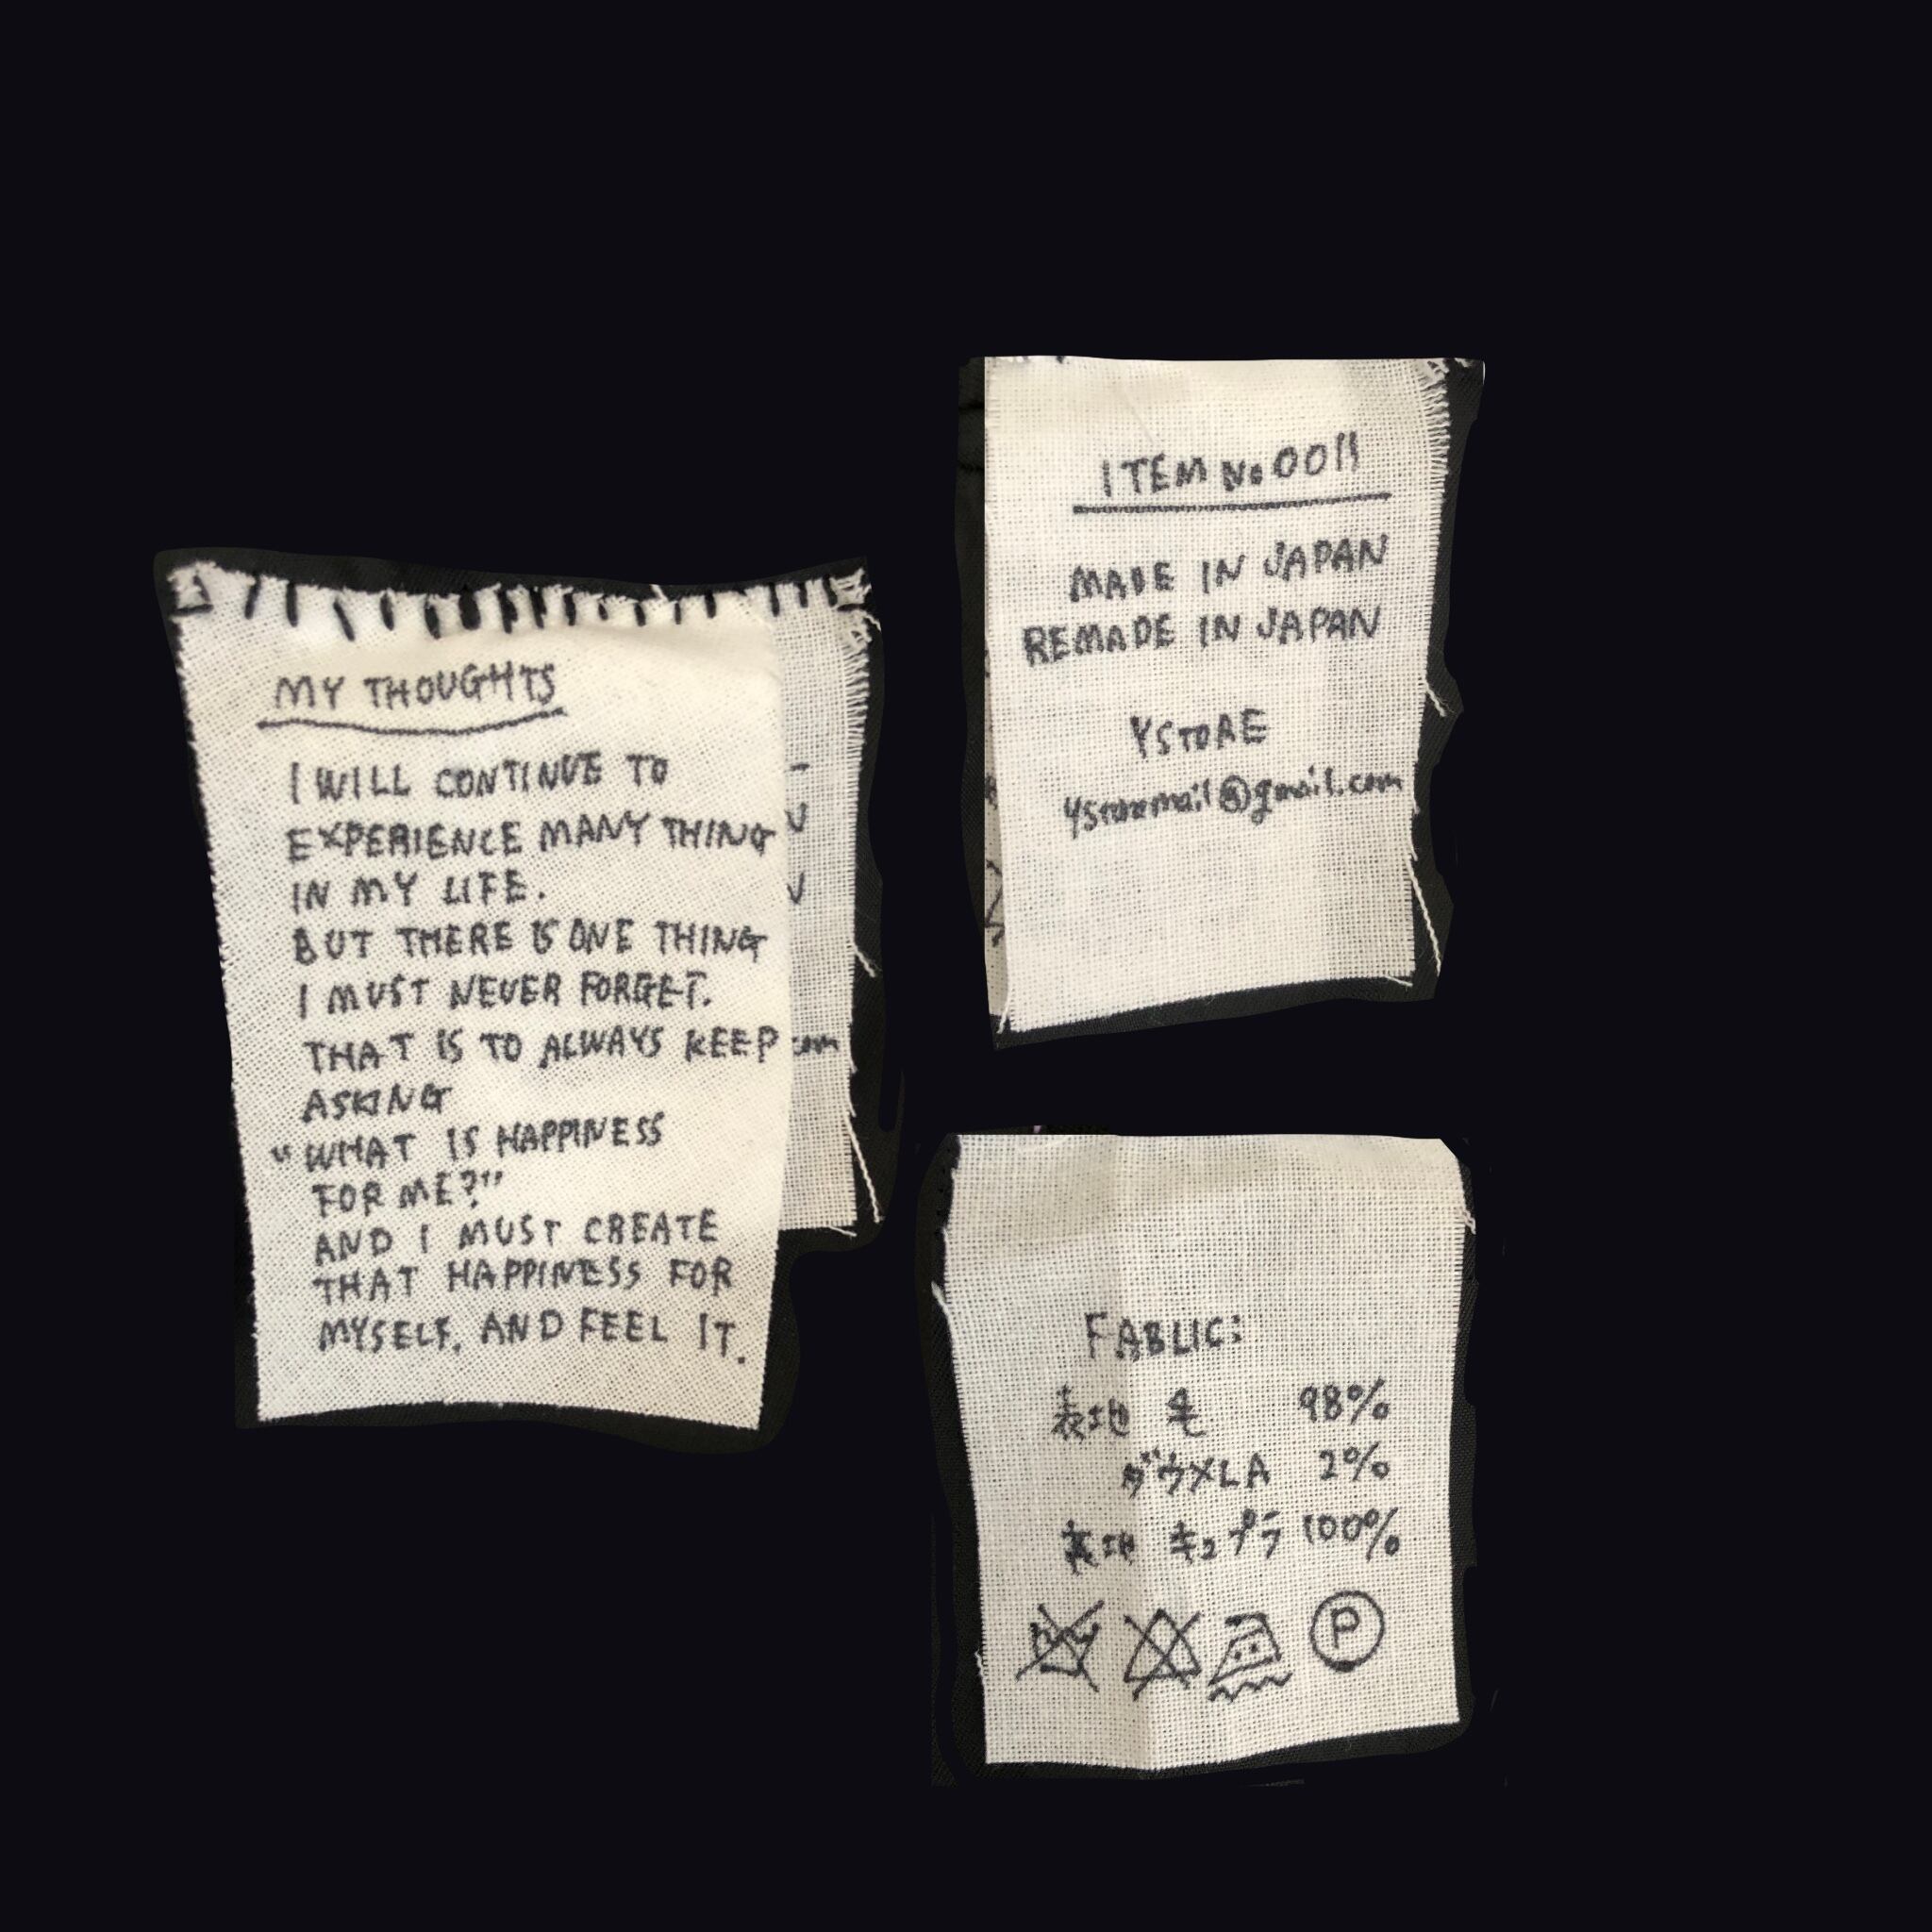 MY THOUGHTS
I WILL CONTINUE TO
EXPERIENCE MANY THING
IN MY LIFE.
BUT THERE IS ONE THING
I MUST NEVER FORGET.
THAT IS TO ALWAYS KEEP
ASKING
"WHAT IS HAPPINESS
FOR ME?"
AND I MUST CREATE
THAT HAPPINESS FOR
MYSELF, AND FEEL IT.
com
ITEM No 0011
MADE IN JAPAN
REMADE IN JAPAN
YSTORE
ystoremail@gmail.com
FABLIC:
表地 毛 98%
2%
キュプラ 100%
P